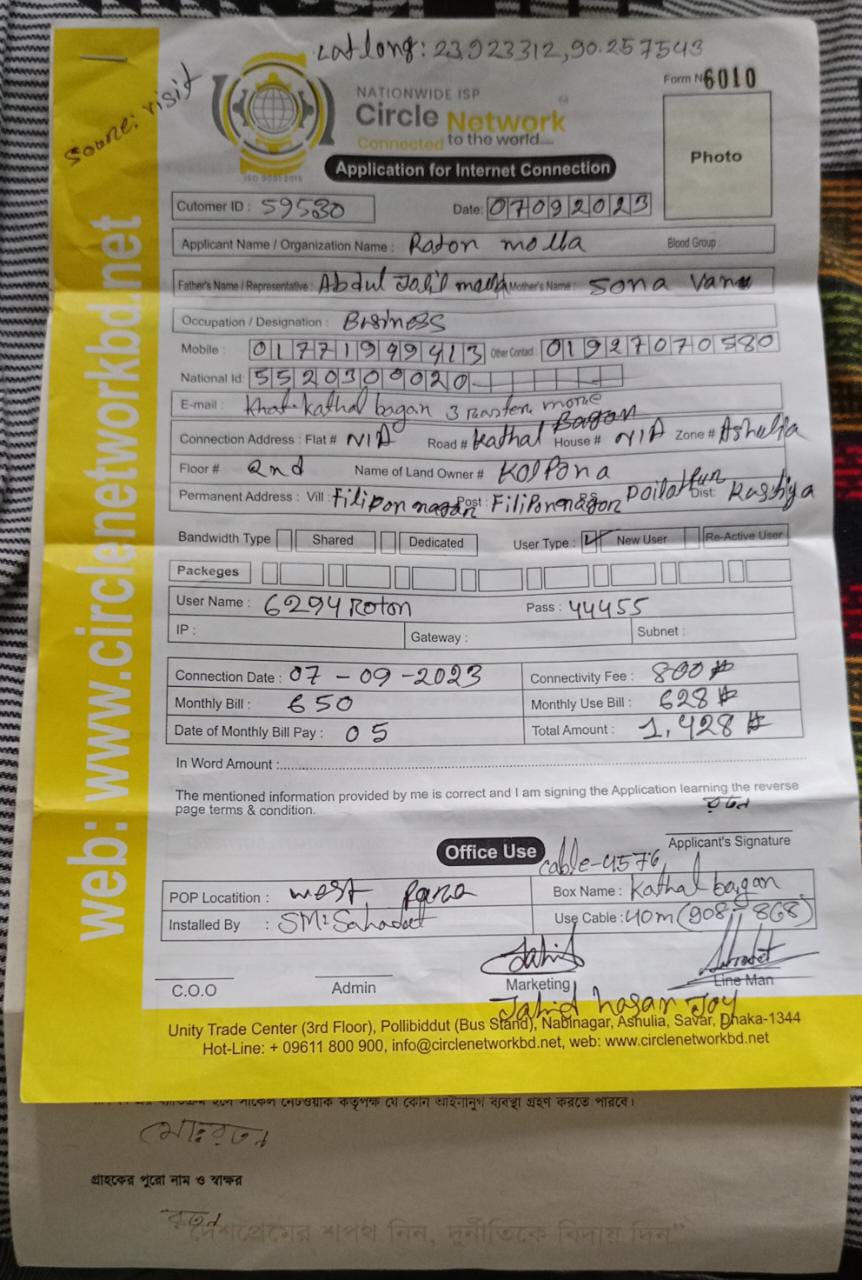 Lat long: 23.923312,90.257543
Soure: visit
Form No 6010
NATIONWIDE ISP
Circle Network
Connected to the world....
ISO 9001:2015
Photo
Application for Internet Connection
Cutomer ID : 59530 Date: 07092023
Applicant Name / Organization Name : Raton molla Blood Group :
Father's Name / Representative : Abdul Jalil molla Mother's Name : Sona Vanu
Occupation / Designation : Business
Mobile : 01771949413 Other Contact : 01927070580
National Id: 5520300020
E-mail : kathal bagan 3
Connection Address : Flat # N/A Road # Kathal Bagan House # N/A Zone # Ashulia
Floor # 2nd Name of Land Owner # Kolpona
Permanent Address : Vill : Filipon nagor Post : Filiponnagon Dist:
Bandwidth Type Shared Dedicated User Type : New User Re-Active User
Packeges
User Name : 6294 Roton Pass : 44455
IP : Gateway : Subnet :
Connection Date : 07-09-2023 Connectivity Fee : 800
Monthly Bill : 650 Monthly Use Bill : 628
Date of Monthly Bill Pay : 05 Total Amount : 1,428
In Word Amount :
The mentioned information provided by me is correct and I am signing the Application learning the reverse
page terms & condition.
রতন
Applicant's Signature
Office Use
cable-4576
POP Locatition : west Para Box Name : Kathal bagan
Installed By : SM: Sahadat Use Cable : 40m (908, 868)
C.O.O Admin Marketing Line Man
Jahid hasan Joy
Unity Trade Center (3rd Floor), Pollibiddut (Bus Stand), Nabinagar, Ashulia, Savar, Dhaka-1344
Hot-Line: + 09611 800 900, info@circlenetworkbd.net, web: www.circlenetworkbd.net
web: www.circlenetworkbd.net
কর্তৃপক্ষ যে কোন আইনানুগ ব্যবস্থা গ্রহণ করতে পারবে।
মোঃ রতন
গ্রাহকের পুরো নাম ও স্বাক্ষর
রতন
"দেশপ্রেমের শপথ নিন, দুর্নীতিকে বিদায় দিন"